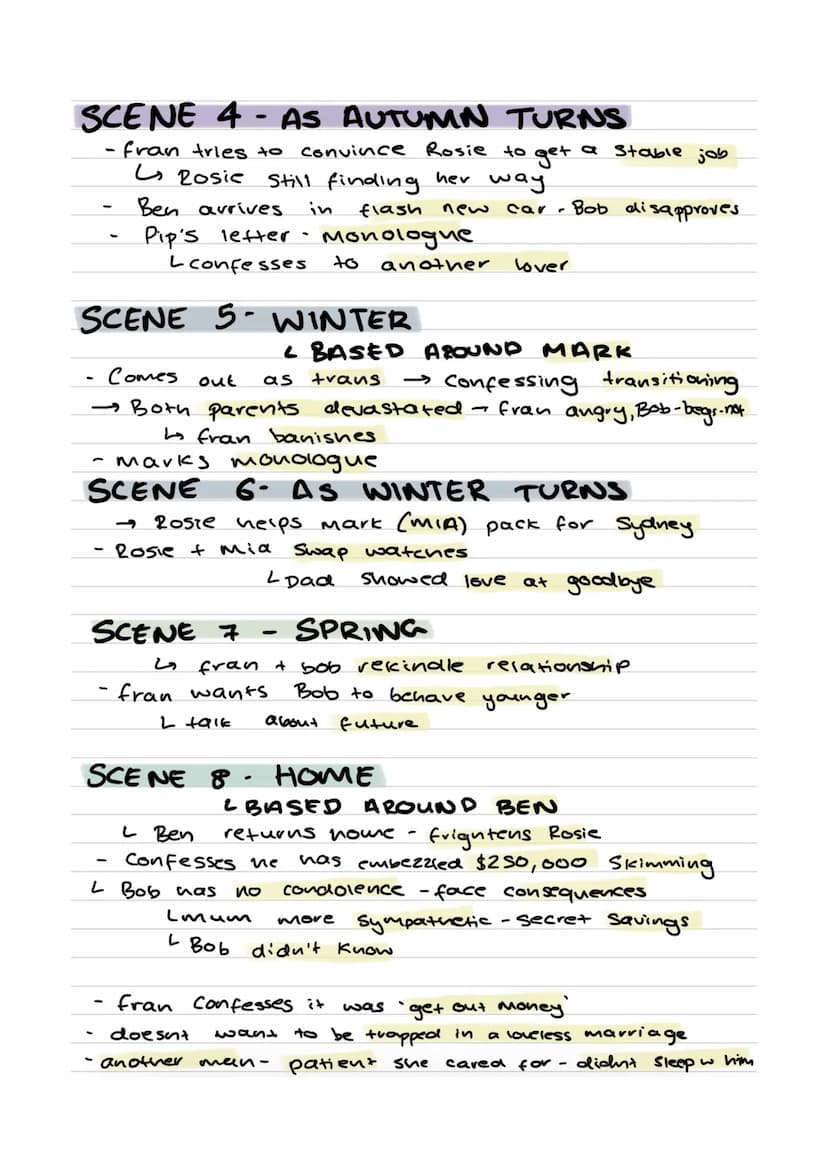 SCENE 4 - AS AUTUMN TURNS
- fran tries to convince Rosie to get a stable job
↳ Rosie still finding her way
- Ben arrives in flash new car - Bob disapproves
- Pip's letter - Monologue
└ confesses to another lover
SCENE 5 - WINTER
└ BASED AROUND MARK
- Comes out as trans → confessing transitioning
→ Both parents devastated - fran angry, Bob-begs-not
↳ fran banishes
- marks monologue
SCENE 6 - AS WINTER TURNS
→ Rosie helps mark (MIA) pack for Sydney
- Rosie + Mia swap watches
└ Dad showed love at goodbye
SCENE 7 - SPRING
↳ fran + bob rekindle relationship
- fran wants Bob to behave younger
└ talk about future
SCENE 8 - HOME
└ BASED AROUND BEN
└ Ben returns home - frightens Rosie
- Confesses he has embezzled $250,000 skimming
└ Bob has no condolence - face consequences
└ mum more sympathetic - secret savings
└ Bob didn't know
- fran confesses it was 'get out money'
- doesnt want to be trapped in a loveless marriage
- another man - patient she cared for - didnt sleep w him